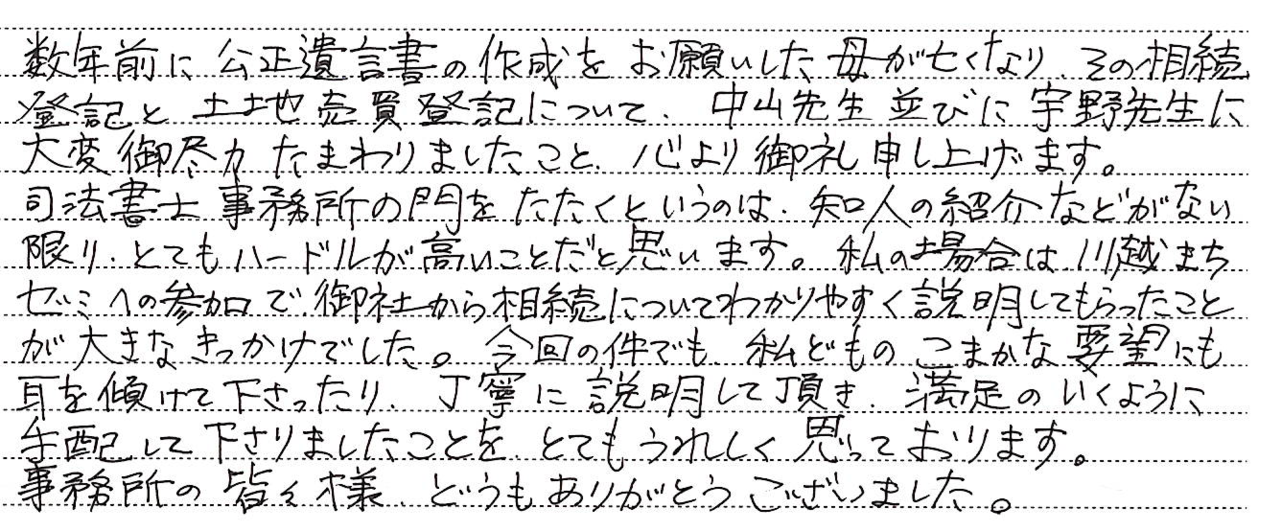 数年前に公正遺言書の作成をお願いした母が亡くなり、その相続
登記と土地売買登記について、中山先生並びに宇野先生に
大変御尽力たまわりましたこと、心より御礼申し上げます。
司法書士事務所の門をたたくというのは、知人の紹介などがない
限り、とてもハードルが高いことだと思います。私の場合は川越まち
ゼミへの参加で、御社から相続についてわかりやすく説明してもらったこと
が大きなきっかけでした。今回の件でも、私どものこまかな要望にも
耳を傾けて下さったり、丁寧に説明して頂き、満足のいくように
手配して下さりましたことを、とてもうれしく思っております。
事務所の皆々様、どうもありがとうございました。